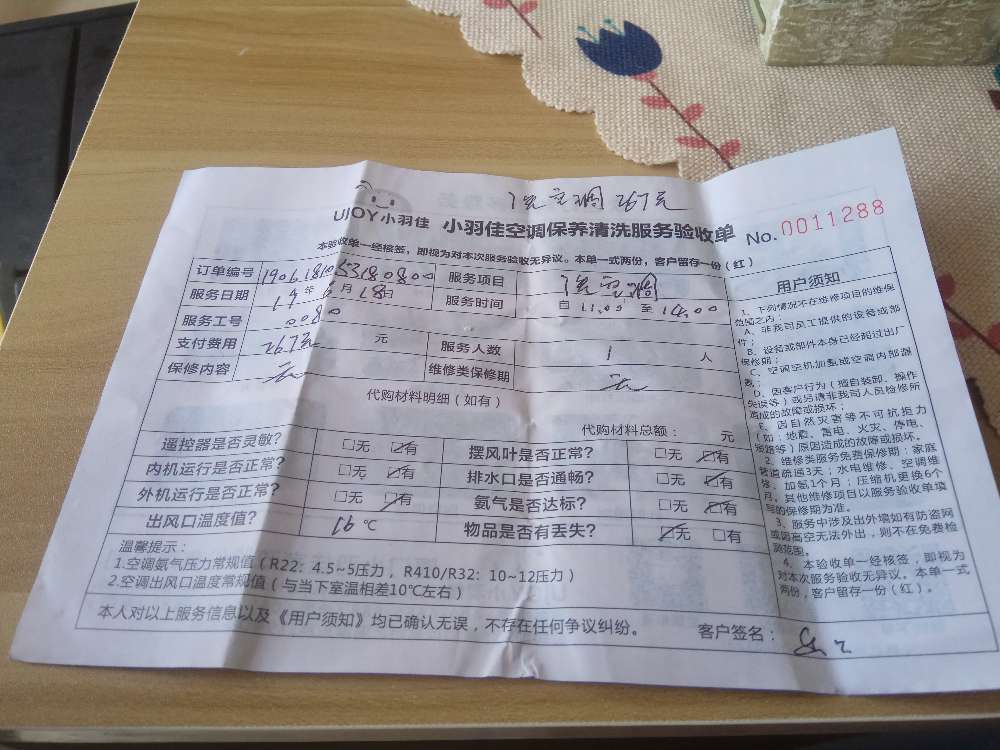 洗空调 267元
UJOY小羽佳 小羽佳空调保养清洗服务验收单 No.0011288
本验收单一经核签，即视为对本次服务验收无异议。本单一式两份，客户留存一份（红）
订单编号 服务项目 洗空调
服务日期 19年6月18日 服务时间 自 11:00 至 14:00
服务工号 0080
支付费用 267元 元 服务人数 1 人
保修内容 无 维修类保修期 无
代购材料明细（如有）
代购材料总额： 元
遥控器是否灵敏? □无 ☑有 摆风叶是否正常? □无 ☑有
内机运行是否正常? □无 ☑有 排水口是否通畅? □无 ☑有
外机运行是否正常? □无 ☑有 氨气是否达标? □无 ☑有
出风口温度值? 16 ℃ 物品是否有丢失? ☑无 □有
温馨提示：
1.空调氨气压力常规值（R22：4.5~5压力，R410/R32：10~12压力）
2.空调出风口温度常规值（与当下室温相差10℃左右）
本人对以上服务信息以及《用户须知》均已确认无误，不存在任何争议纠纷。 客户签名：
用户须知
1、下列情况不在维修项目的维保
范畴之内：
A、非我司员工提供的设装或部
件；
B、设装或部件本身已经超过出厂
保修期；
C、空调空机加氨或空调内部漏
氨；
D、因客户行为（擅自装卸、操作
失误等）或另请非我司人员检修所
造成的故障或损坏；
E、因自然灾害等不可抗拒力
（如：地震、雷电、火灾、停电、
短路等）原因造成的故障或损坏。
2、维修类服务免费保修期：家庭
管道疏通3天；水电维修、空调维
修、加氨1个月；压缩机更换6个
月。其他维修项目以服务验收单填
写的保修期为准。
3、服务中涉及出外墙如有防盗网
或因高空无法外出，则不在免费检
测范围。
4、本验收单一经核签，即视为
对本次服务验收无异议。本单一式
两份，客户留存一份（红）。